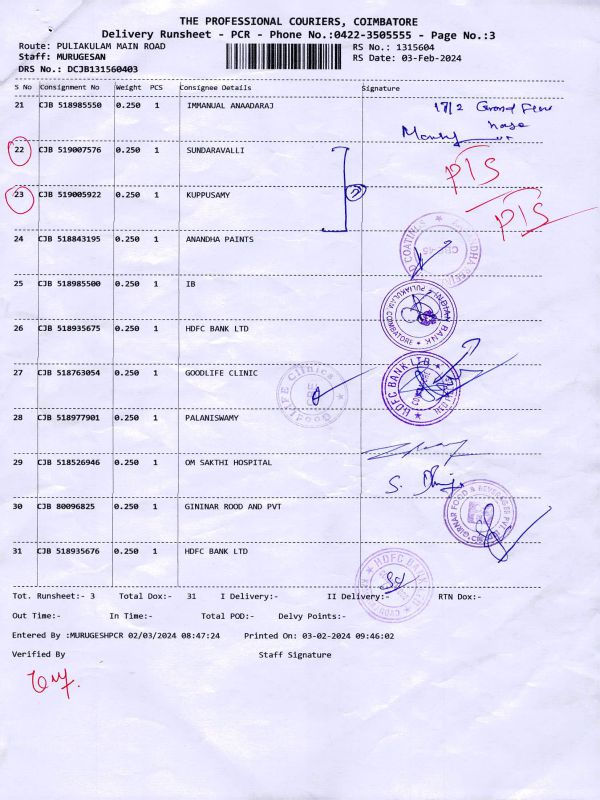 THE PROFESSIONAL COURIERS, COIMBATORE
Delivery Runsheet - PCR - Phone No.:0422-3505555 - Page No.:3
Route: PULIAKULAM MAIN ROAD RS No.: 1315604
Staff: MURUGESAN RS Date: 03-Feb-2024
DRS No.: DCJB131560403
S No Consignment No Weight PCS Consignee Details Signature
21 CJB 518985550 0.250 1 IMMANUAL ANAADARAJ
22 CJB 519007576 0.250 1 SUNDARAVALLI P/S
23 CJB 519005922 0.250 1 KUPPUSAMY P/S
24 CJB 518843195 0.250 1 ANANDHA PAINTS
25 CJB 518985500 0.250 1 IB
INDIAN BANK PULIAKULAM COIMBATORE
26 CJB 518935675 0.250 1 HDFC BANK LTD
HDFC BANK LTD
27 CJB 518763054 0.250 1 GOODLIFE CLINIC
28 CJB 518977901 0.250 1 PALANISWAMY
29 CJB 518526946 0.250 1 OM SAKTHI HOSPITAL
30 CJB 80096825 0.250 1 GININAR ROOD AND PVT
GIRNAR FOOD & BEVERAGES PVT
31 CJB 518935676 0.250 1 HDFC BANK LTD
HDFC BANK
Tot. Runsheet:- 3 Total Dox:- 31 I Delivery:- II Delivery:- RTN Dox:-
Out Time:- In Time:- Total POD:- Delvy Points:-
Entered By :MURUGESHPCR 02/03/2024 08:47:24 Printed On: 03-02-2024 09:46:02
Verified By Staff Signature